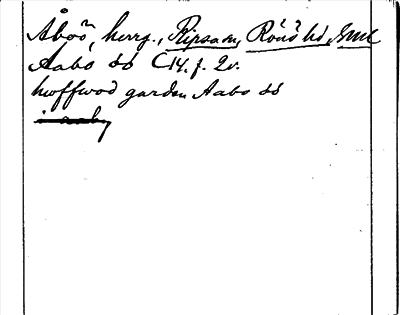 Åböö, herrg., Ripsa sn, Rönö hd, Sml
Aabo ss C14. f. 2v.
hwffwod garden Aabo ss
i aaby